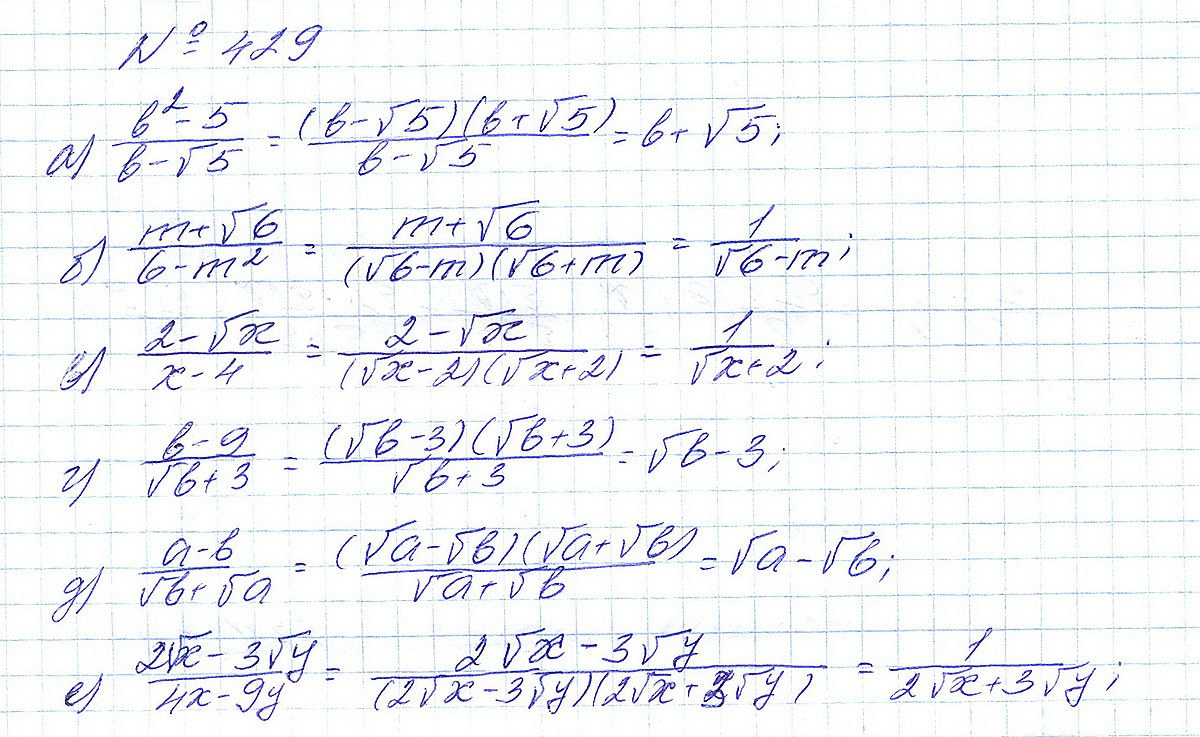 № 429
а) (b² - 5)/(b - √5) = ((b - √5)(b + √5))/(b - √5) = b + √5;
б) (m + √6)/(6 - m²) = (m + √6)/((√6 - m)(√6 + m)) = 1/(√6 - m);
в) (2 - √x)/(x - 4) = (2 - √x)/((√x - 2)(√x + 2)) = 1/(√x + 2);
г) (b - 9)/(√b + 3) = ((√b - 3)(√b + 3))/(√b + 3) = √b - 3;
д) (a - b)/(√b + √a) = ((√a - √b)(√a + √b))/(√a + √b) = √a - √b;
е) (2√x - 3√y)/(4x - 9y) = (2√x - 3√y)/((2√x - 3√y)(2√x + 3√y)) = 1/(2√x + 3√y);